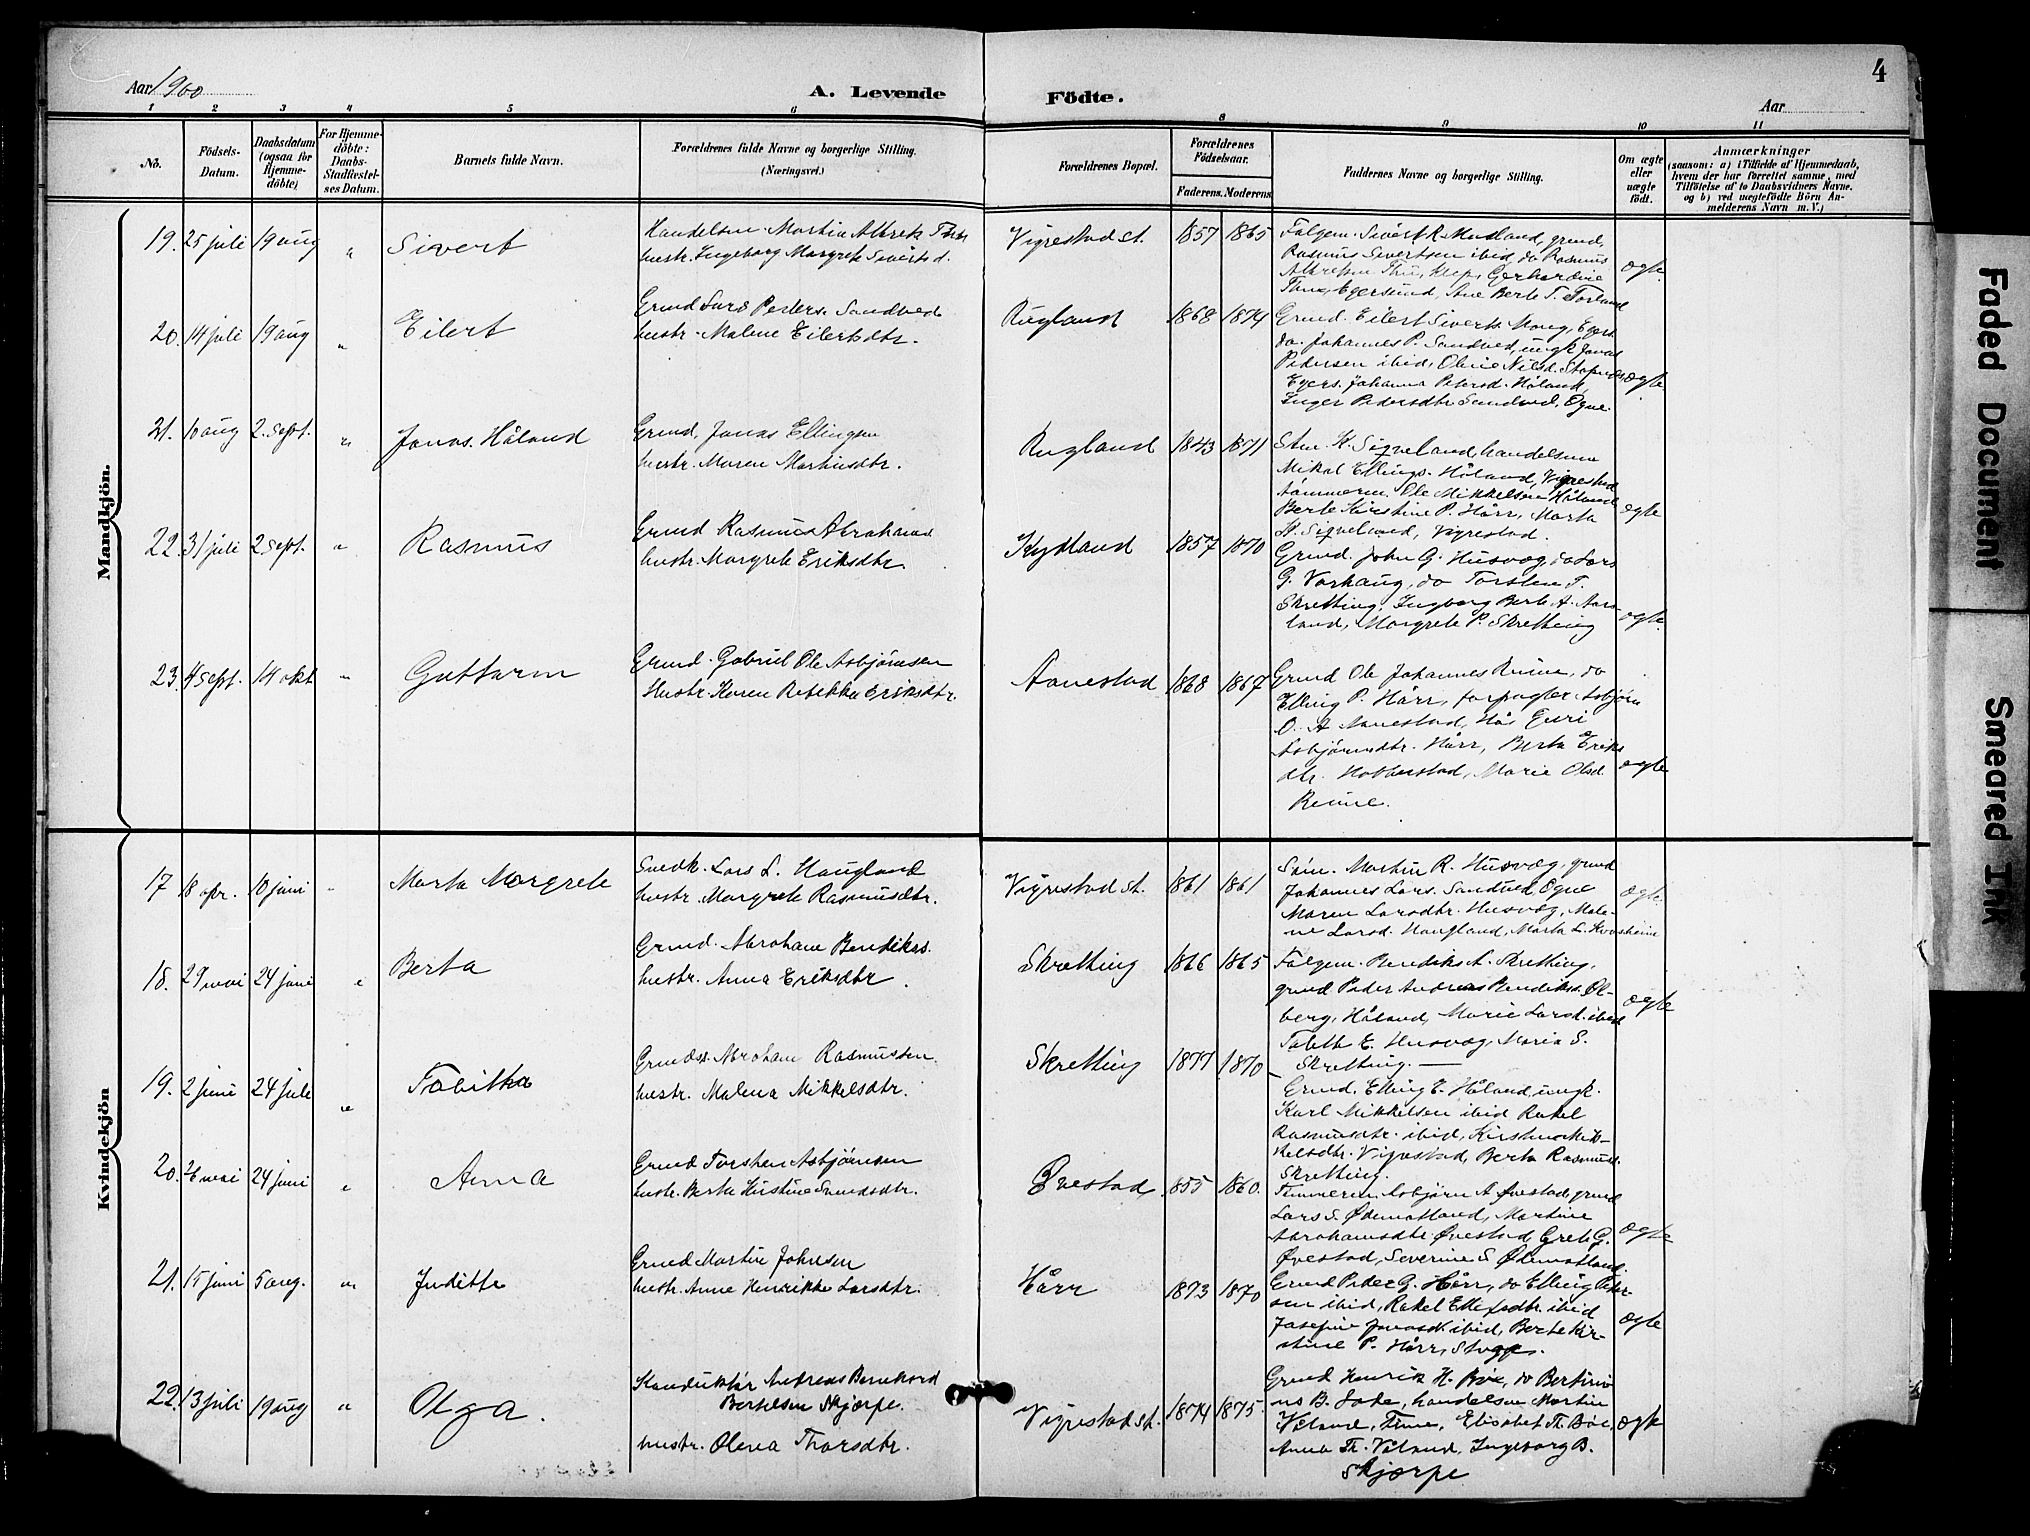 4
Aar 1900
A. Levende Födte.
Aar
1 2 3 4 5 6 8 9 10 11
No.
Födsels-Datum.
Daabsdatum (ogsaa for Hjemme-döbte)
For Hjemme-döbte: Daabs-Stadfæstel-ses Datum.
Barnets fulde Navn.
Forældrenes fulde Navne og borgerlige Stilling. (Næringsvei.)
Forældrenes Bopæl.
Forældrenes Födselsaar.
Faderens. Moderens
Faddernes Navne og borgerlige Stilling.
Om ægte eller uægte födt.
Anmærkninger
(saasom: a) i Tilfælde af Hjemmedaab, hvem der har forrettet samme, med Tilföielse af to Daabsvidners Navne. og b) ved uægtefödte Börn An-melderens Navn m. V.)
Mandkjön.
19. 25 juli 19 aug " Sivert
Handelsm. Martin Albrekts Thu
hustr. Ingeborg Margrete Sivertsd.
Vigrestad st. 1857 1865
Følgem. Sivert R. Motland, grmd,
Rasmus Sivertsen ibid, do Rasmus
Albretsen Thu, Klep, Gerhardine
Thu, Egersund, Ane Berte T. Torland
ægte
20. 14 juli 19 aug " Eilert
Grmd Lars Peders. Sandved
hustr. Malene Eilertsdtr.
Rugland 1868 1874
Grmd. Eilert Siverts. Mong, Egers
do. Johannes P. Sandved, ungk Jonas
Pedersen ibid, Oline Nilsd. Stapnes,
Egers. Johanna Petersd. Håland,
Inger Pedersdtr Sandved, Ogne.
ægte
21. 10 aug 2. sept. " Jonas Håland
Grmd, Jonas Ellingsen
hustr. Maren Martinsdtr.
Rugland 1843 1871
Stm. K. Sigveland, handelsmm
Mikal Ellings. Håland, Vigrestad
tømmerm. Ole Mikkelsen Håland
Berte Kirstine P. Hårr, Marta
K. Sigveland, Vigrestad.
ægte
22. 31 juli 2 sept. " Rasmus
Grmd Rasmus Abrahams
hustr. Margrete Eriksdtr.
Kydland 1857 1870
Grmd. John G. Husvæg, do Lars
G. Varhaug, do Torsten T.
Skretting, Ingborg Berte A. Aars-
land, Margrete P. Skretting
ægte.
23. 4 sept. 14 okt " Guttorm
Grmd. Gabriel Ole Asbjørnsen
Hustr. Karen Rebekka Eriksdtr.
Aanestad 1868 1867
Grmd Ole Johannes Reime, do
Elling P. Hårr, forpagter Asbjørn
O. A Aanestad, Hå, Guri
Asbjørnsdtr. Hårr, Berta Eriks
dtr. Hobberstad, Marie Olsd
Reime.
ægte
Kvindekjön
17 18 apr. 10 juni " Marta Margrete
Snedk. Lars L. Haugland
hustr. Margrete Rasmusdtr.
Vigrestad st. 1861 1861
Søm. Martin R. Husvæg, grmd
Johannes Lars. Sandved, Ogne
Maren Larsdtr. Husvæg, Male-
ne Larsd. Haugland, Marta L. Kvasheim
ægte.
18. 29 mai 24 juni " Berta
Grmd. Abraham Bendikss.
hustr. Anna Eriksdtr.
Skretting 1866 1865
Følgem. Bendiks A. Skretting,
grmd Peder Andreas Bendikss. Øl-
berg, Håland, Marie Larsd. ibid
Tabith E. Husvæg, Maria S.
Skretting.
ægte
19. 2 juni 24 juli " Tabitha
Grmds. Abraham Rasmussen.
hustr. Malena Mikkelsdtr.
Skretting 1877 1870
Grmd. Elling E. Håland, ungk.
Karl Mikkelsen ibid Rakel
Rasmusdtr. ibid, Kirstine Mik-
kelsdtr. Vigrestad, Berta Rasmusd.
Skretting.
20. 26 mai 24 juni " Anna
Grmd Torsten Asbjørnsen
hustr. Berta Kirstine Svendsdtr.
Øvestad. 1855 1860.
Tømmerm. Asbjørn A Øvestad, grmd
Lars S. Ødemotland, Martine
Abrahamsdtr. Øvestad, Grete G.
Øvestad, Severine S. Ødemotland.
ægte
21. 15 juni 5 aug. " Judithe
Grmd Martin Johnsen
hustr. Anne Henrikke Larsdtr.
Hårr 1873 1870
Grmd Peder G. Hårr, do Elling Peder-
sen ibid, Rakel Ellefsdtr. ibid
Josefine Jonasd. ibid, Berte Kir-
stine P. Hårr,
ægte
22. 13 juli 19 aug " Olga.
Konduktør Andreas Bernhard
Bertelsen Skjærpe.
hustr. Olena Thorsdtr.
Vigrestad st. 1874 1875
Grmd Henrik H. Bøe, do Bertini-
us B. Lode, handelsm Martin
Våland, Time, Elisabet Th. Bøe,
Anna Th. Våland, Ingeborg B.
Skjærpe
ægte
Faded Document
Smeared Ink